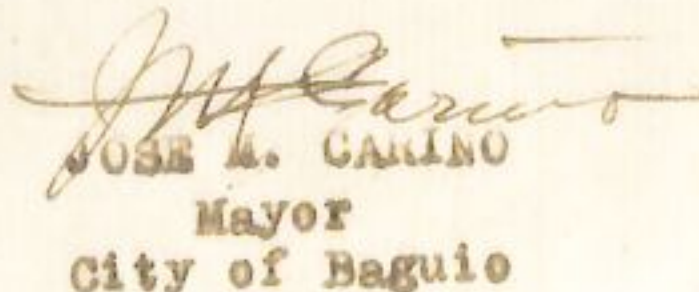 JM Cariño
JOSE M. CARINO
Mayor
City of Baguio